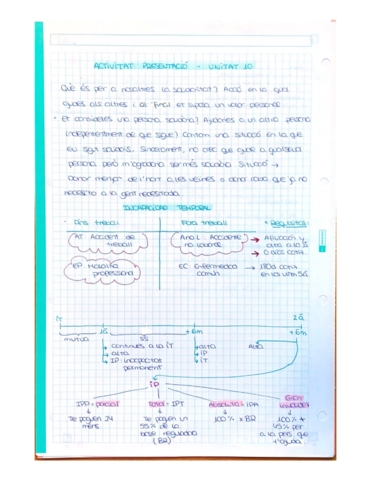 ACTIVITAT PRESENTACIÓ - UNITAT 10
Què és per a nosaltres la solidaritat? Acció en la qual
ajudes als altres i al final et suposa un valor personal
· Et consideres una persona solidària? Ajudaries a un altra persona
independentment de qui sigui? Contam una situació en la que
eu sigut solidaris. Sincerament, no crec que ajude a qualsevol
persona, però m'agradaria ser més solidària. Situació →
Donar menjar a les veïnes o donar roba que ja no
necesito a la gent necessitada.
INCAPACITAT TEMPORAL
Dins treball
Fora treball
+ Requisits:
AT: Accident de treball
Acno L: Accidente no laboral
→ Afiliació y alta a la SS
→ 0 dies cotit.
EP: Malaltia professional
EC: Enfermedad común
→ 180d cotit en los ults 5a
IT
1a
+6m
2a
+6m
mutua
SS
→ continues a la IT
→ alta
→ IP: incapacitat permanent
→ alta
→ IP
→ IT
Alta
IP
IPP = parcial
Total = IPT
Absoluta: IPA
Gran invalidesa
Te paguen 24 mens.
Te paguen un 55% de la base reguladora (BR)
100% x BR
100% + 45% per a la pers que t'ajuda